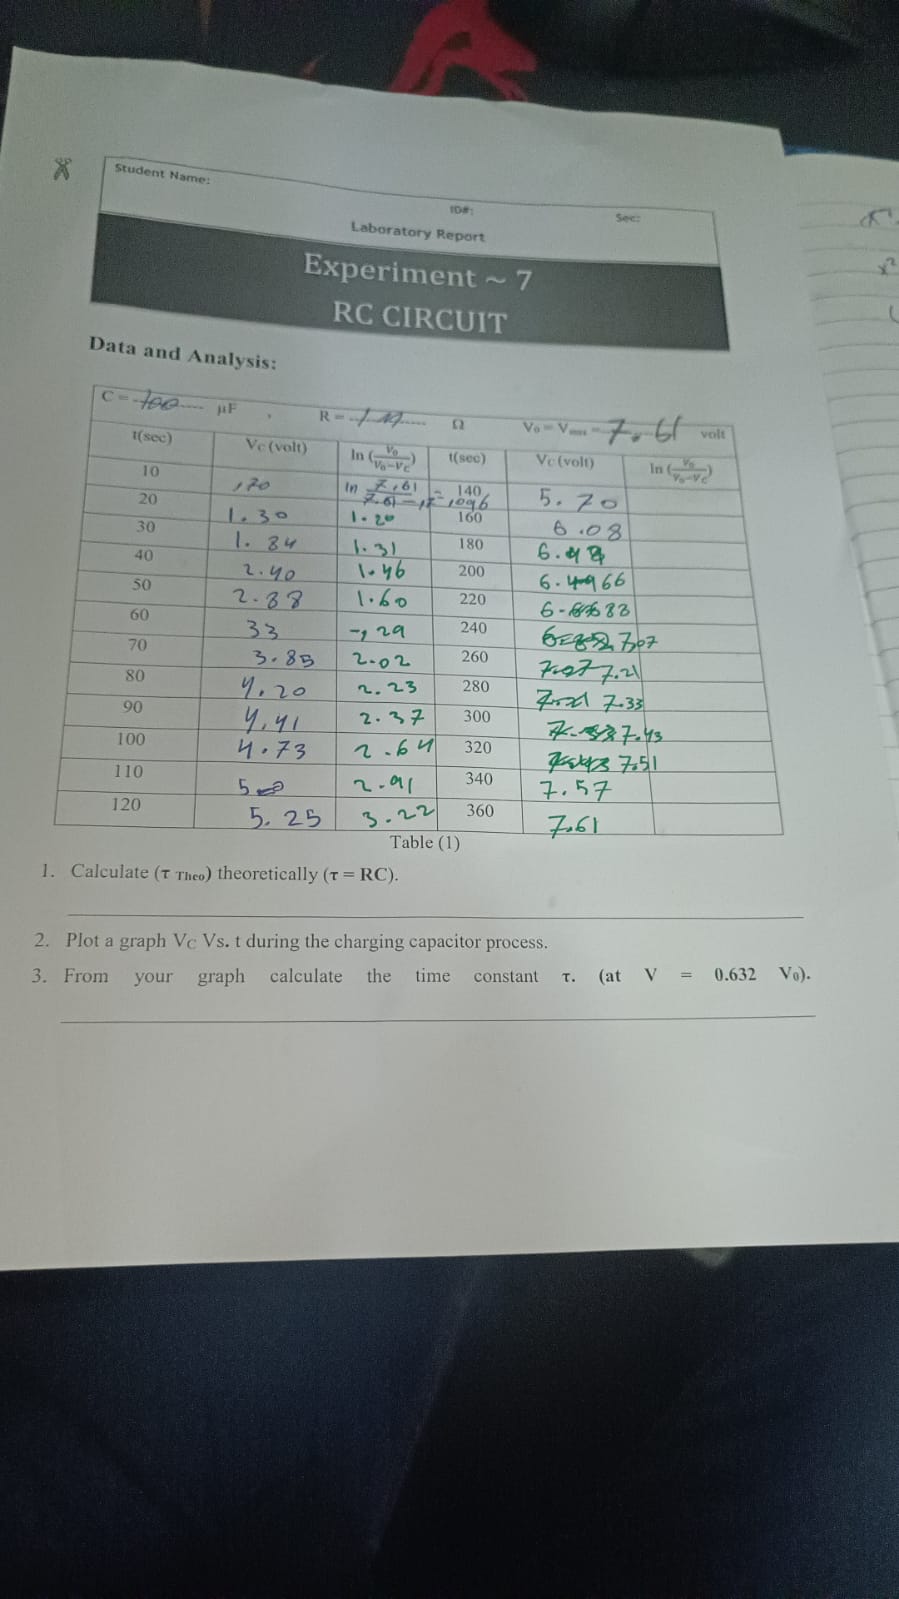 Student Name:
ID#: Sec:
Laboratory Report
Experiment ~ 7
RC CIRCUIT
Data and Analysis:
C = 100 µF , R = 1 M Ω V₀ = Vmax = 7.61 volt
t(sec) Vc (volt) ln (V₀/V₀-Vc) t(sec) Vc (volt) ln (V₀/V₀-Vc)
10 ,70 ln 7,61/7.61-,7 = ,096 140 5.70
20 1.30 1.20 160 6.08
30 1.84 1.31 180
40 2.40 1.46 200
50 2.88 1.60 220
60 33 -,29 240 7,07
70 3.85 2.02 260 7.21
80 4.20 2.23 280 7.33
90 4,41 2.37 300 7.43
100 4.73 2.64 320 7.51
110 2.91 340 7.57
120 5.25 3.22 360 7.61
Table (1)
1. Calculate (τ Theo) theoretically (τ = RC).
2. Plot a graph VC Vs. t during the charging capacitor process.
3. From your graph calculate the time constant τ. (at V = 0.632 V₀).